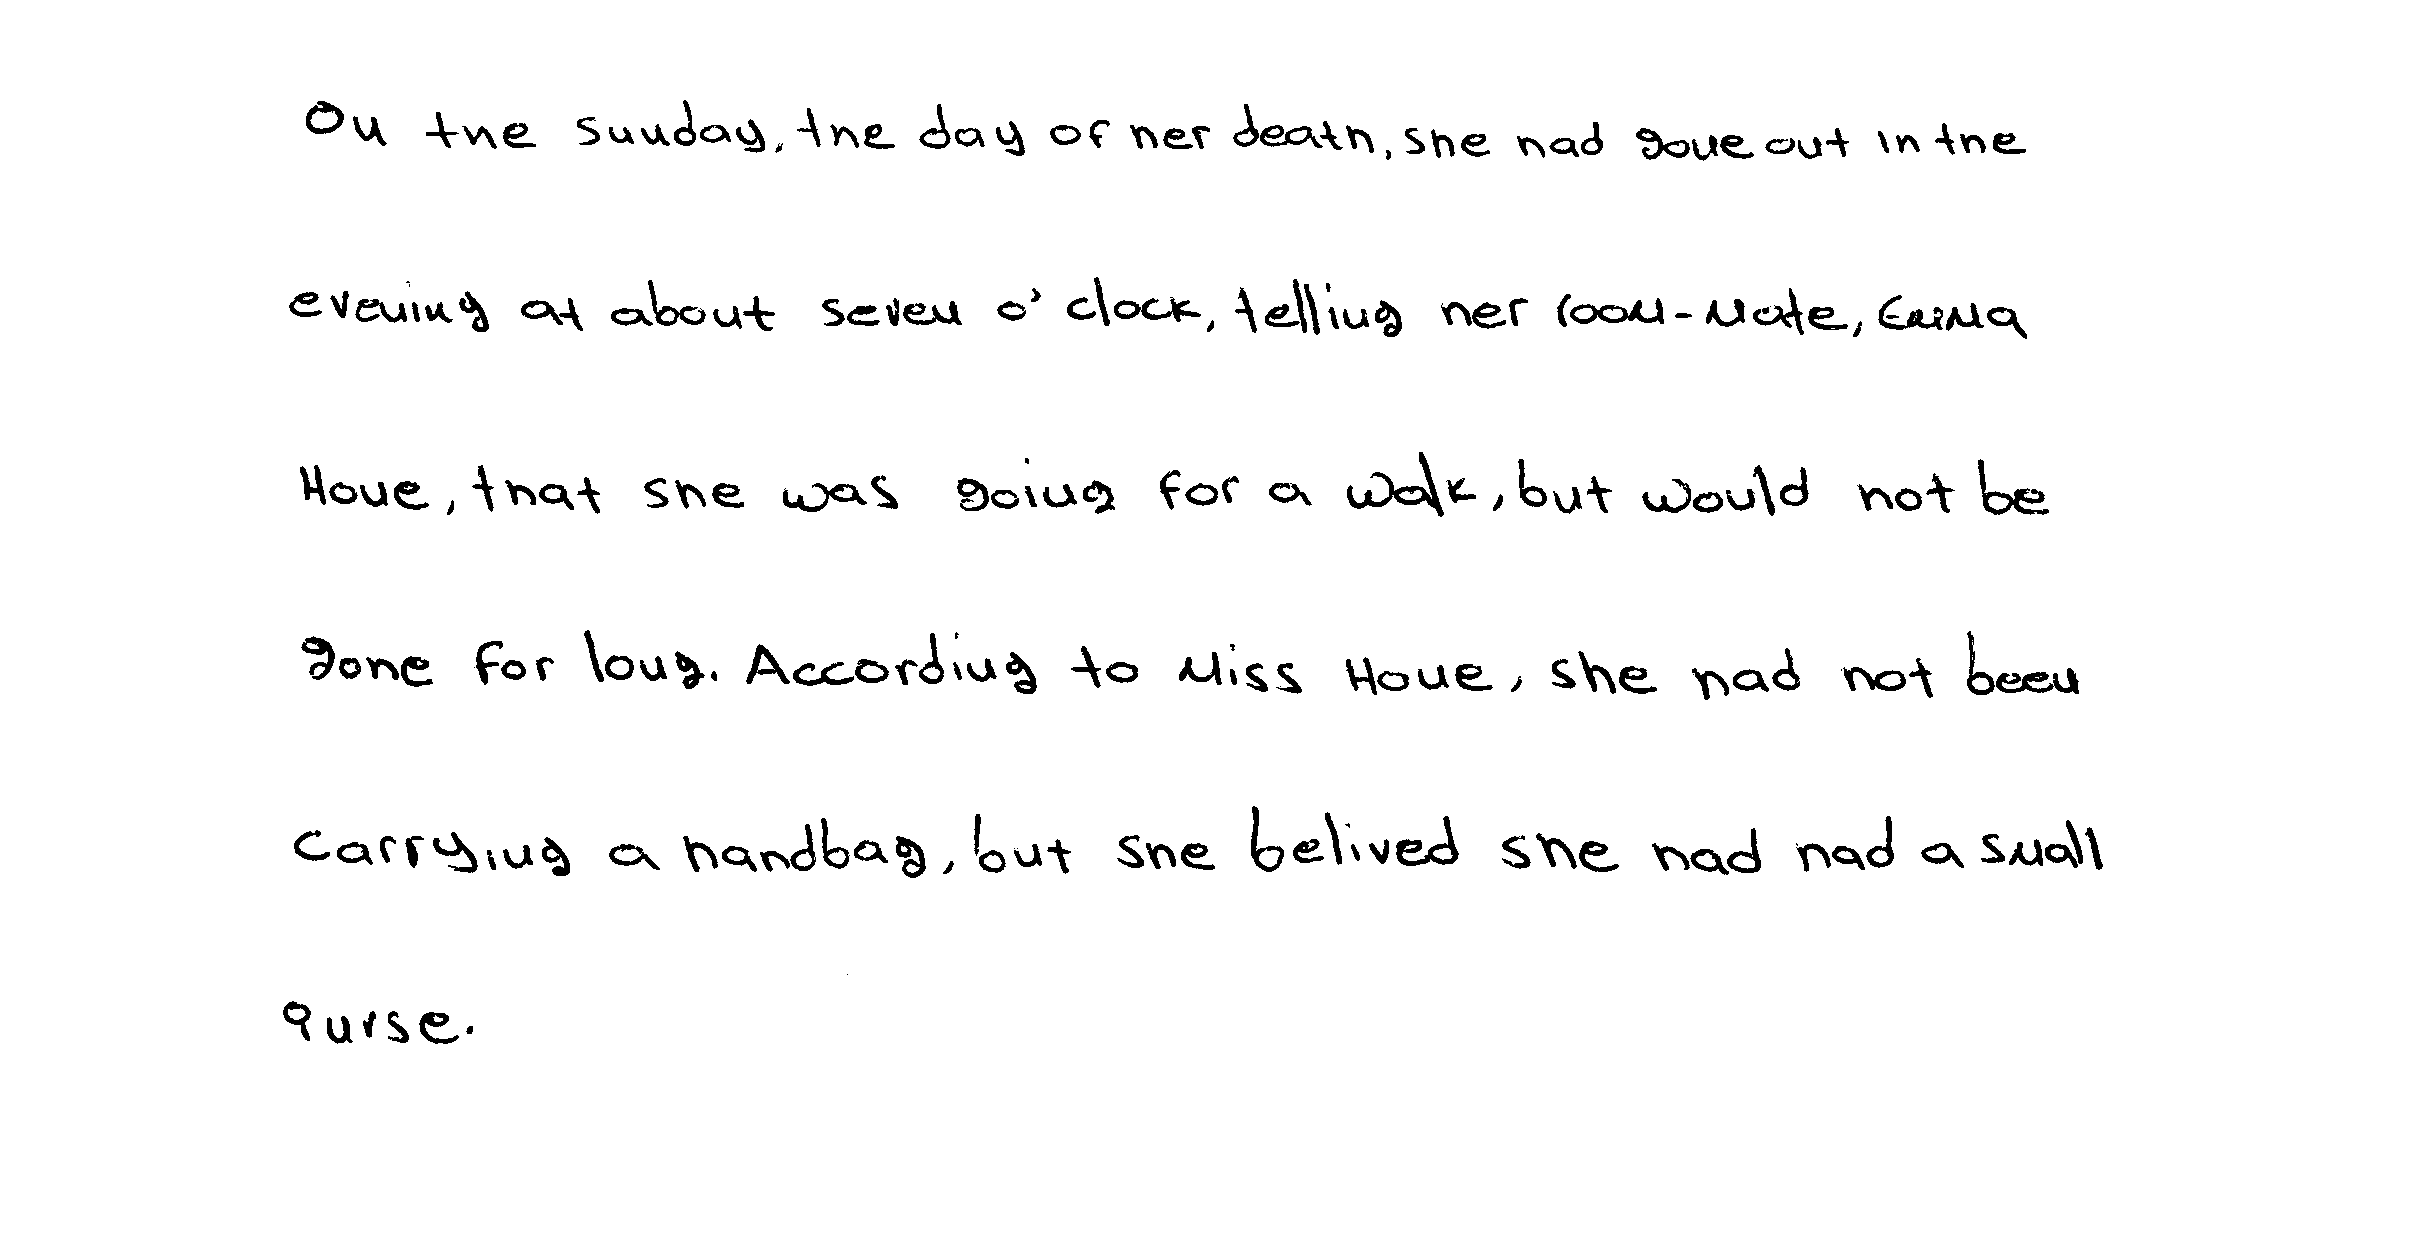 On the Sunday, the day of her death, she had gone out in the
evening at about seven o'clock, telling her room-mate, Emma
Hone, that she was going for a walk, but would not be
gone for long. According to Miss Hone, she had not been
carrying a handbag, but she belived she had had a small
purse.